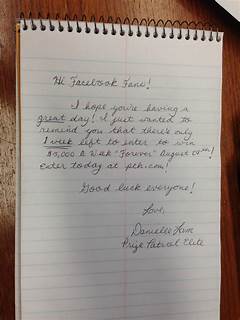 Hi Facebook Fans!
I hope you're having a
great day! I just wanted to
remind you that there's only
1 week left to enter to win
$5,000 A Week "Forever" August
Enter today at pch.com!
Good luck everyone!
Love,
Danielle Lam
Prize Patrol Elite